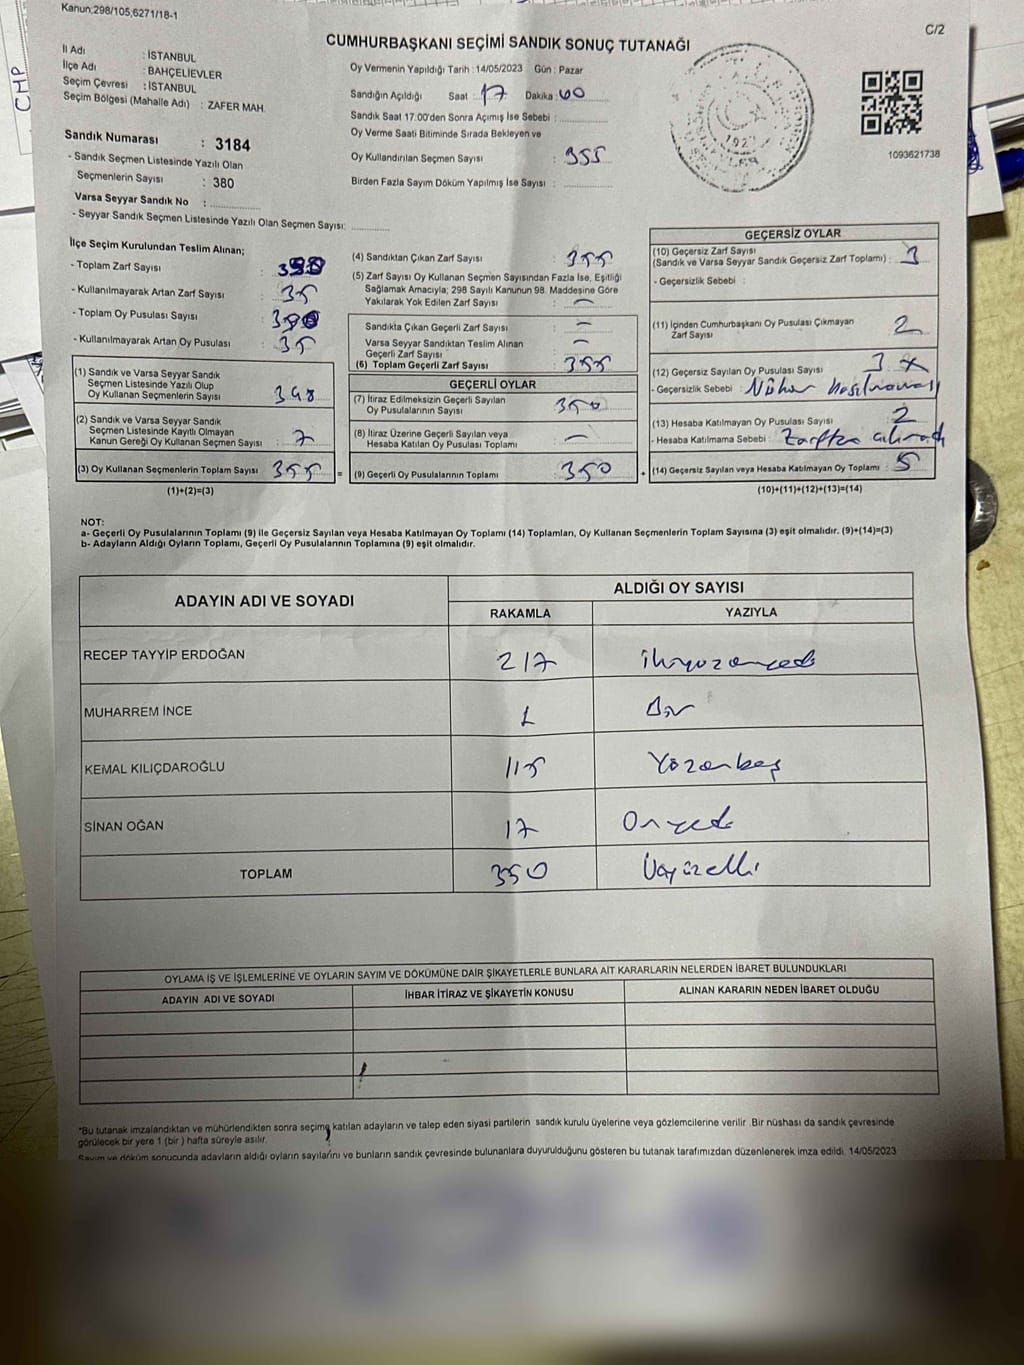 Kanun;298/105,6271/18-1
C/2
CHP
CUMHURBAŞKANI SEÇİMİ SANDIK SONUÇ TUTANAĞI
İl Adı : İSTANBUL
İlçe Adı : BAHÇELİEVLER
Seçim Çevresi : İSTANBUL
Seçim Bölgesi (Mahalle Adı) : ZAFER MAH.
Sandık Numarası : 3184
- Sandık Seçmen Listesinde Yazılı Olan
Seçmenlerin Sayısı : 380
Varsa Seyyar Sandık No :
- Seyyar Sandık Seçmen Listesinde Yazılı Olan Seçmen Sayısı:
Oy Vermenin Yapıldığı Tarih : 14/05/2023 Gün : Pazar
Sandığın Açıldığı Saat : 17 Dakika : 00
Sandık Saat 17:00'den Sonra Açımış İse Sebebi :
Oy Verme Saati Bitiminde Sırada Bekleyen ve
Oy Kullandırılan Seçmen Sayısı : 355
Birden Fazla Sayım Döküm Yapılmış İse Sayısı :
1093621738
İlçe Seçim Kurulundan Teslim Alınan;
- Toplam Zarf Sayısı :
- Kullanılmayarak Artan Zarf Sayısı : 35
- Toplam Oy Pusulası Sayısı :
- Kullanılmayarak Artan Oy Pusulası : 35
(1) Sandık ve Varsa Seyyar Sandık
Seçmen Listesinde Yazılı Olup
Oy Kullanan Seçmenlerin Sayısı : 348
(2) Sandık ve Varsa Seyyar Sandık
Seçmen Listesinde Kayıtlı Olmayan
Kanun Gereği Oy Kullanan Seçmen Sayısı : 7
(3) Oy Kullanan Seçmenlerin Toplam Sayısı : 355 =
(1)+(2)=(3)
(4) Sandıktan Çıkan Zarf Sayısı : 355
(5) Zarf Sayısı Oy Kullanan Seçmen Sayısından Fazla İse, Eşitliği
Sağlamak Amacıyla; 298 Sayılı Kanunun 98. Maddesine Göre
Yakılarak Yok Edilen Zarf Sayısı : –
Sandıkta Çıkan Geçerli Zarf Sayısı : –
Varsa Seyyar Sandıktan Teslim Alınan
Geçerli Zarf Sayısı : –
(6) Toplam Geçerli Zarf Sayısı : 355
GEÇERLİ OYLAR
(7) İtiraz Edilmeksizin Geçerli Sayılan
Oy Pusulalarının Sayısı : 350
(8) İtiraz Üzerine Geçerli Sayılan veya
Hesaba Katılan Oy Pusulası Toplamı : –
(9) Geçerli Oy Pusulalarının Toplamı : 350 +
GEÇERSİZ OYLAR
(10) Geçersiz Zarf Sayısı
(Sandık ve Varsa Seyyar Sandık Geçersiz Zarf Toplamı) : 3
- Geçersizlik Sebebi :
(11) İçinden Cumhurbaşkanı Oy Pusulası Çıkmayan
Zarf Sayısı : 2
(12) Geçersiz Sayılan Oy Pusulası Sayısı : 3
- Geçersizlik Sebebi : Mühür basılmaması
(13) Hesaba Katılmayan Oy Pusulası Sayısı : 2
- Hesaba Katılmama Sebebi : Zarftan çıkmadı
(14) Geçersiz Sayılan veya Hesaba Katılmayan Oy Toplamı : 5
(10)+(11)+(12)+(13)=(14)
NOT:
a- Geçerli Oy Pusulalarının Toplamı (9) ile Geçersiz Sayılan veya Hesaba Katılmayan Oy Toplamı (14) Toplamları, Oy Kullanan Seçmenlerin Toplam Sayısına (3) eşit olmalıdır. (9)+(14)=(3)
b- Adayların Aldığı Oyların Toplamı, Geçerli Oy Pusulalarının Toplamına (9) eşit olmalıdır.
ADAYIN ADI VE SOYADI
ALDIĞI OY SAYISI
RAKAMLA YAZIYLA
RECEP TAYYİP ERDOĞAN 217 ikiyüzonyedi
MUHARREM İNCE 1 Bir
KEMAL KILIÇDAROĞLU 115 Yüzonbeş
SİNAN OĞAN 17 Onyedi
TOPLAM 350 Üçyüzelli
OYLAMA İŞ VE İŞLEMLERİNE VE OYLARIN SAYIM VE DÖKÜMÜNE DAİR ŞİKAYETLERLE BUNLARA AİT KARARLARIN NELERDEN İBARET BULUNDUKLARI
ADAYIN ADI VE SOYADI İHBAR İTİRAZ VE ŞİKAYETİN KONUSU ALINAN KARARIN NEDEN İBARET OLDUĞU
*Bu tutanak imzalandıktan ve mühürlendikten sonra seçime katılan adayların ve talep eden siyasi partilerin sandık kurulu üyelerine veya gözlemcilerine verilir .Bir nüshası da sandık çevresinde
görülecek bir yere 1 (bir ) hafta süreyle asılır.
Sayım ve döküm sonucunda adayların aldığı oyların sayılarını ve bunların sandık çevresinde bulunanlara duyurulduğunu gösteren bu tutanak tarafımızdan düzenlenerek imza edildi. 14/05/2023